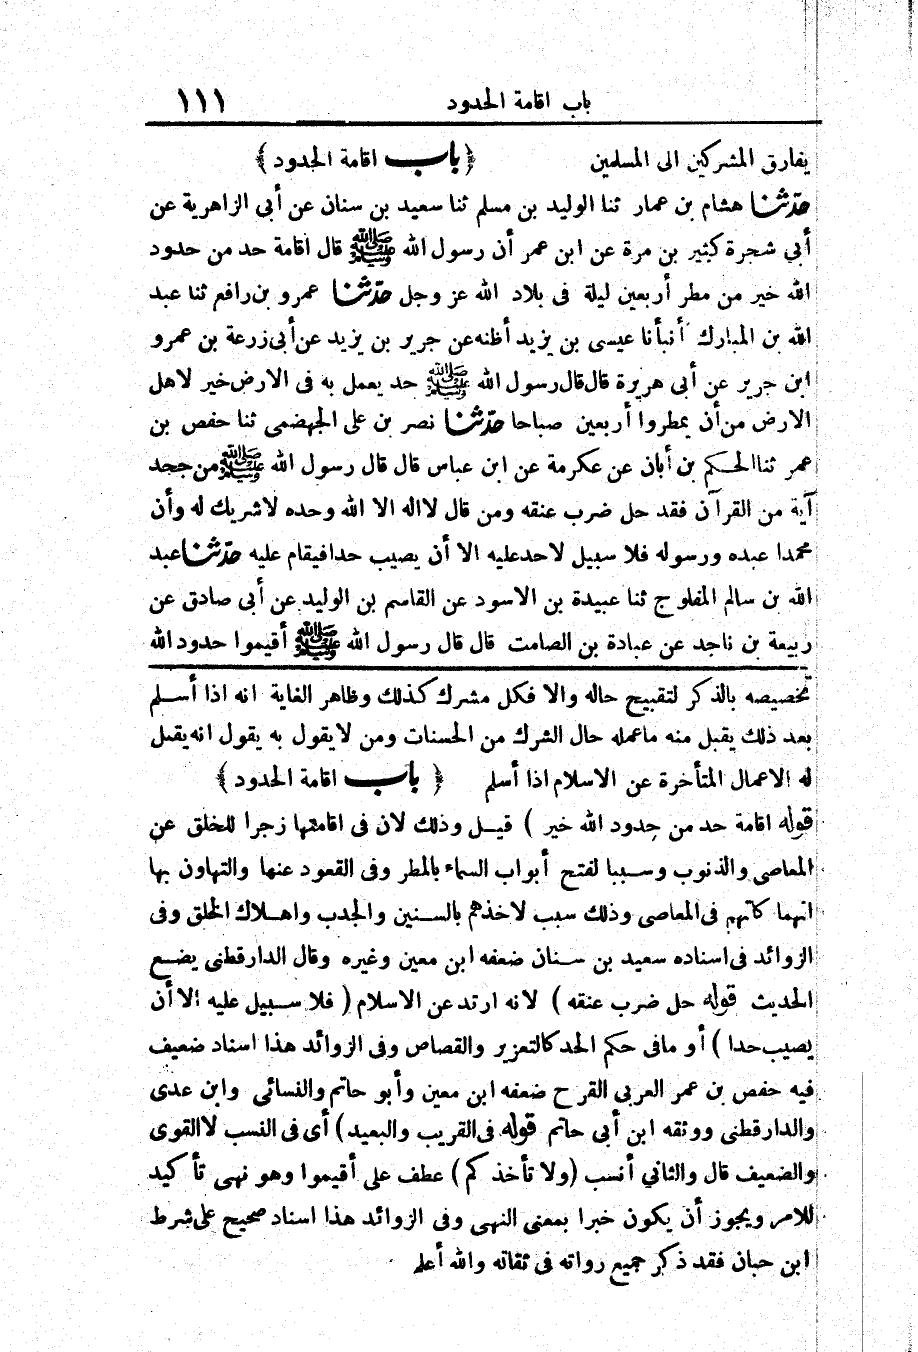 باب اقامة الحدود ١١١
يفارق المشركين الى المسلمين ﴿ باب اقامة الحدود ﴾
حدّثنا هشام بن عمار ثنا الوليد بن مسلم ثنا سعيد بن سنان عن أبى الزاهرية عن
أبي شجرة كثير بن مرة عن ابن عمر أن رسول الله ﷺ قال اقامة حد من حدود
الله خير من مطر أربعين ليلة فى بلاد الله عز وجل حدّثنا عمرو بن رافع ثنا عبد
الله بن المبارك أنبأنا عيسى بن يزيد أظنه عن جرير بن يزيد عن أبى زرعة بن عمرو
ابن جرير عن أبى هريرة قال قال رسول الله ﷺ حد يعمل به فى الارض خير لاهل
الارض من أن يمطروا أربعين صباحا حدّثنا نصر بن على الجهضمى ثنا حفص بن
عمر ثنا الحكم بن أبان عن عكرمة عن ابن عباس قال قال رسول الله ﷺ من جحد
آية من القرآن فقد حل ضرب عنقه ومن قال لا اله الا الله وحده لا شريك له وأن
محمدا عبده ورسوله فلا سبيل لاحد عليه الا أن يصيب حدا فيقام عليه حدّثنا عبد
الله بن سالم المفلوج ثنا عبيدة بن الاسود عن القاسم بن الوليد عن أبى صادق عن
ربيعة بن ناجد عن عبادة بن الصامت قال قال رسول الله ﷺ أقيموا حدود الله
تخصيصه بالذكر لتقبيح حاله والا فكل مشرك كذلك وظاهر الغاية انه اذا أسلم
بعد ذلك يقبل منه ما عمله حال الشرك من الحسنات ومن لا يقول به يقول انه يقبل
له الاعمال المتأخرة عن الاسلام اذا أسلم ﴿ باب اقامة الحدود ﴾
قوله اقامة حد من حدود الله خير ) قيل وذلك لان فى اقامتها زجرا للخلق عن
المعاصى والذنوب وسببا لفتح أبواب السماء بالمطر وفى القعود عنها والتهاون بها
انهما كاتهم فى المعاصى وذلك سبب لاخذهم بالسنين والجدب واهلاك الخلق وفى
الزوائد فى اسناده سعيد بن سنان ضعفه ابن معين وغيره وقال الدارقطنى يضع
الحديث قوله حل ضرب عنقه ) لانه ارتد عن الاسلام ( فلا سبيل عليه الا أن
يصيب حدا ) أو ما فى حكم الحد كالتعزير والقصاص وفى الزوائد هذا اسناد ضعيف
فيه حفص بن عمر العربى القرح ضعفه ابن معين وأبو حاتم والنسائى وابن عدى
والدارقطنى ووثقه ابن أبي حاتم قوله فى القريب والبعيد ) أى فى النسب لا القوى
والضعيف قال والثاني أنسب (ولا تأخذكم) عطف على أقيموا وهو نهى تأكيد
للامر ويجوز أن يكون خبرا بمعنى النهى وفى الزوائد هذا اسناد صحيح على شرط
ابن حبان فقد ذكر جميع رواته فى ثقاته والله أعلم